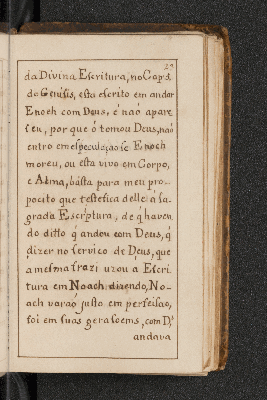 da Divina Escritura, no Cap. 5
do Genisis, esta escrito em andar
Enoch com Deus, é naó apare
seu, por que ó tomou Deus, naó
entro em especulaçaõ se Enoch
moreu, ou esta vivo em Corpo,
e Alma, básta para meu pro-
pocito que testefica delle á sa-
grada Escriptura, de q́ haven
do ditto q́ andou com Deus, q́
dizer no serviço de Deus, que
a mesma frazi uzou á Escri
tura em Noach dizendo, No-
ach varaó justo em perfeisaõ,
foi em suas gerasoems, com D.s
andava